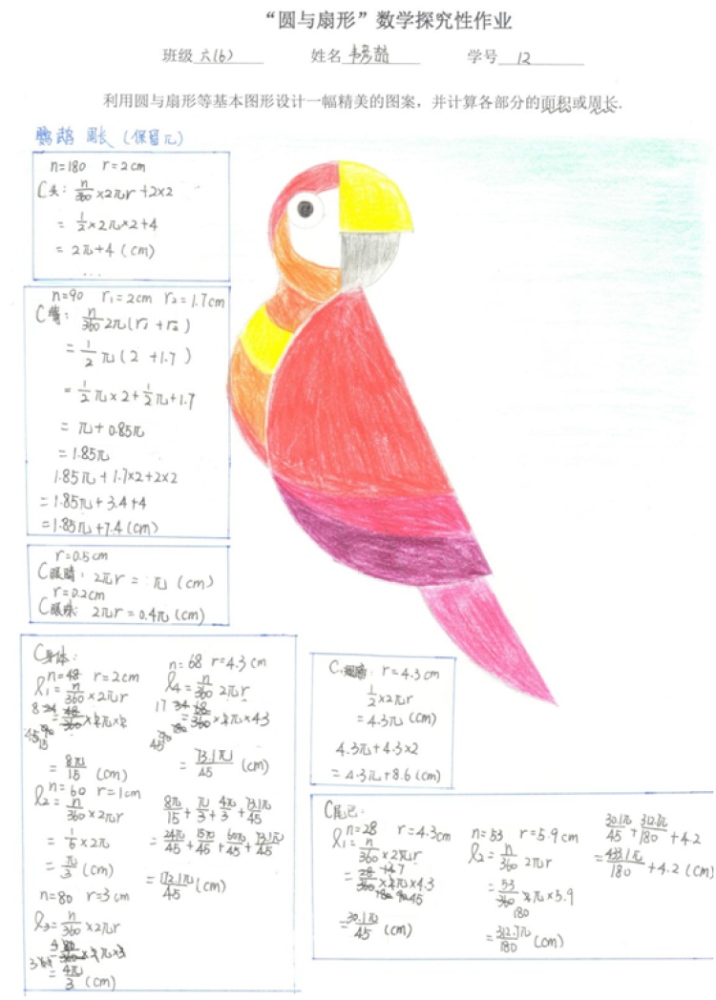 “圆与扇形”数学探究性作业
班级 六(6) 姓名 学号 12
利用圆与扇形等基本图形设计一幅精美的图案，并计算各部分的面积或周长.
鹦鹉 周长 (保留π)
n=180 r=2cm
C头: n/360 ×2πr +2×2
= 1/2 ×2π×2+4
= 2π+4 (cm)
n=90 r₁=2cm r₂=1.7cm
C嘴: n/360 2π(r₁+r₂)
= 1/2 π(2+1.7)
= 1/2 π×2+1/2 π×1.7
= π+0.85π
= 1.85π
1.85π+1.7×2+2×2
=1.85π+3.4+4
=1.85π+7.4(cm)
r=0.5cm
C眼睛: 2πr = π (cm)
r=0.2cm
C眼珠: 2πr=0.4π(cm)
C身体:
n=48 r=2cm
l₁= n/360 ×2πr
= 8π/15 (cm)
n=60 r=1cm
l₂= n/360 ×2πr
= 1/6 ×2π
= π/3 (cm)
n=80 r=3cm
l₃= n/360 ×2πr
= 4π/3 (cm)
n=68 r=4.3cm
l₄= n/360 2πr
= 73.1π/45 (cm)
8π/15 + π/3 + 4π/3 + 73.1π/45
= 24π/45 + 15π/45 + 60π/45 + 73.1π/45
= 172.1π/45 (cm)
C翅膀: r=4.3cm
1/2 ×2πr
=4.3π (cm)
4.3π+4.3×2
=4.3π+8.6(cm)
C尾巴:
n=28 r=4.3cm
l₁= n/360 ×2πr
= 30.1π/45 (cm)
n=53 r=5.9cm
l₂= n/360 2πr
= 53/360 ×2π×5.9
180
= 312.7π/180 (cm)
30.1π/45 + 312.7π/180 +4.2
= 433.1π/180 +4.2 (cm)